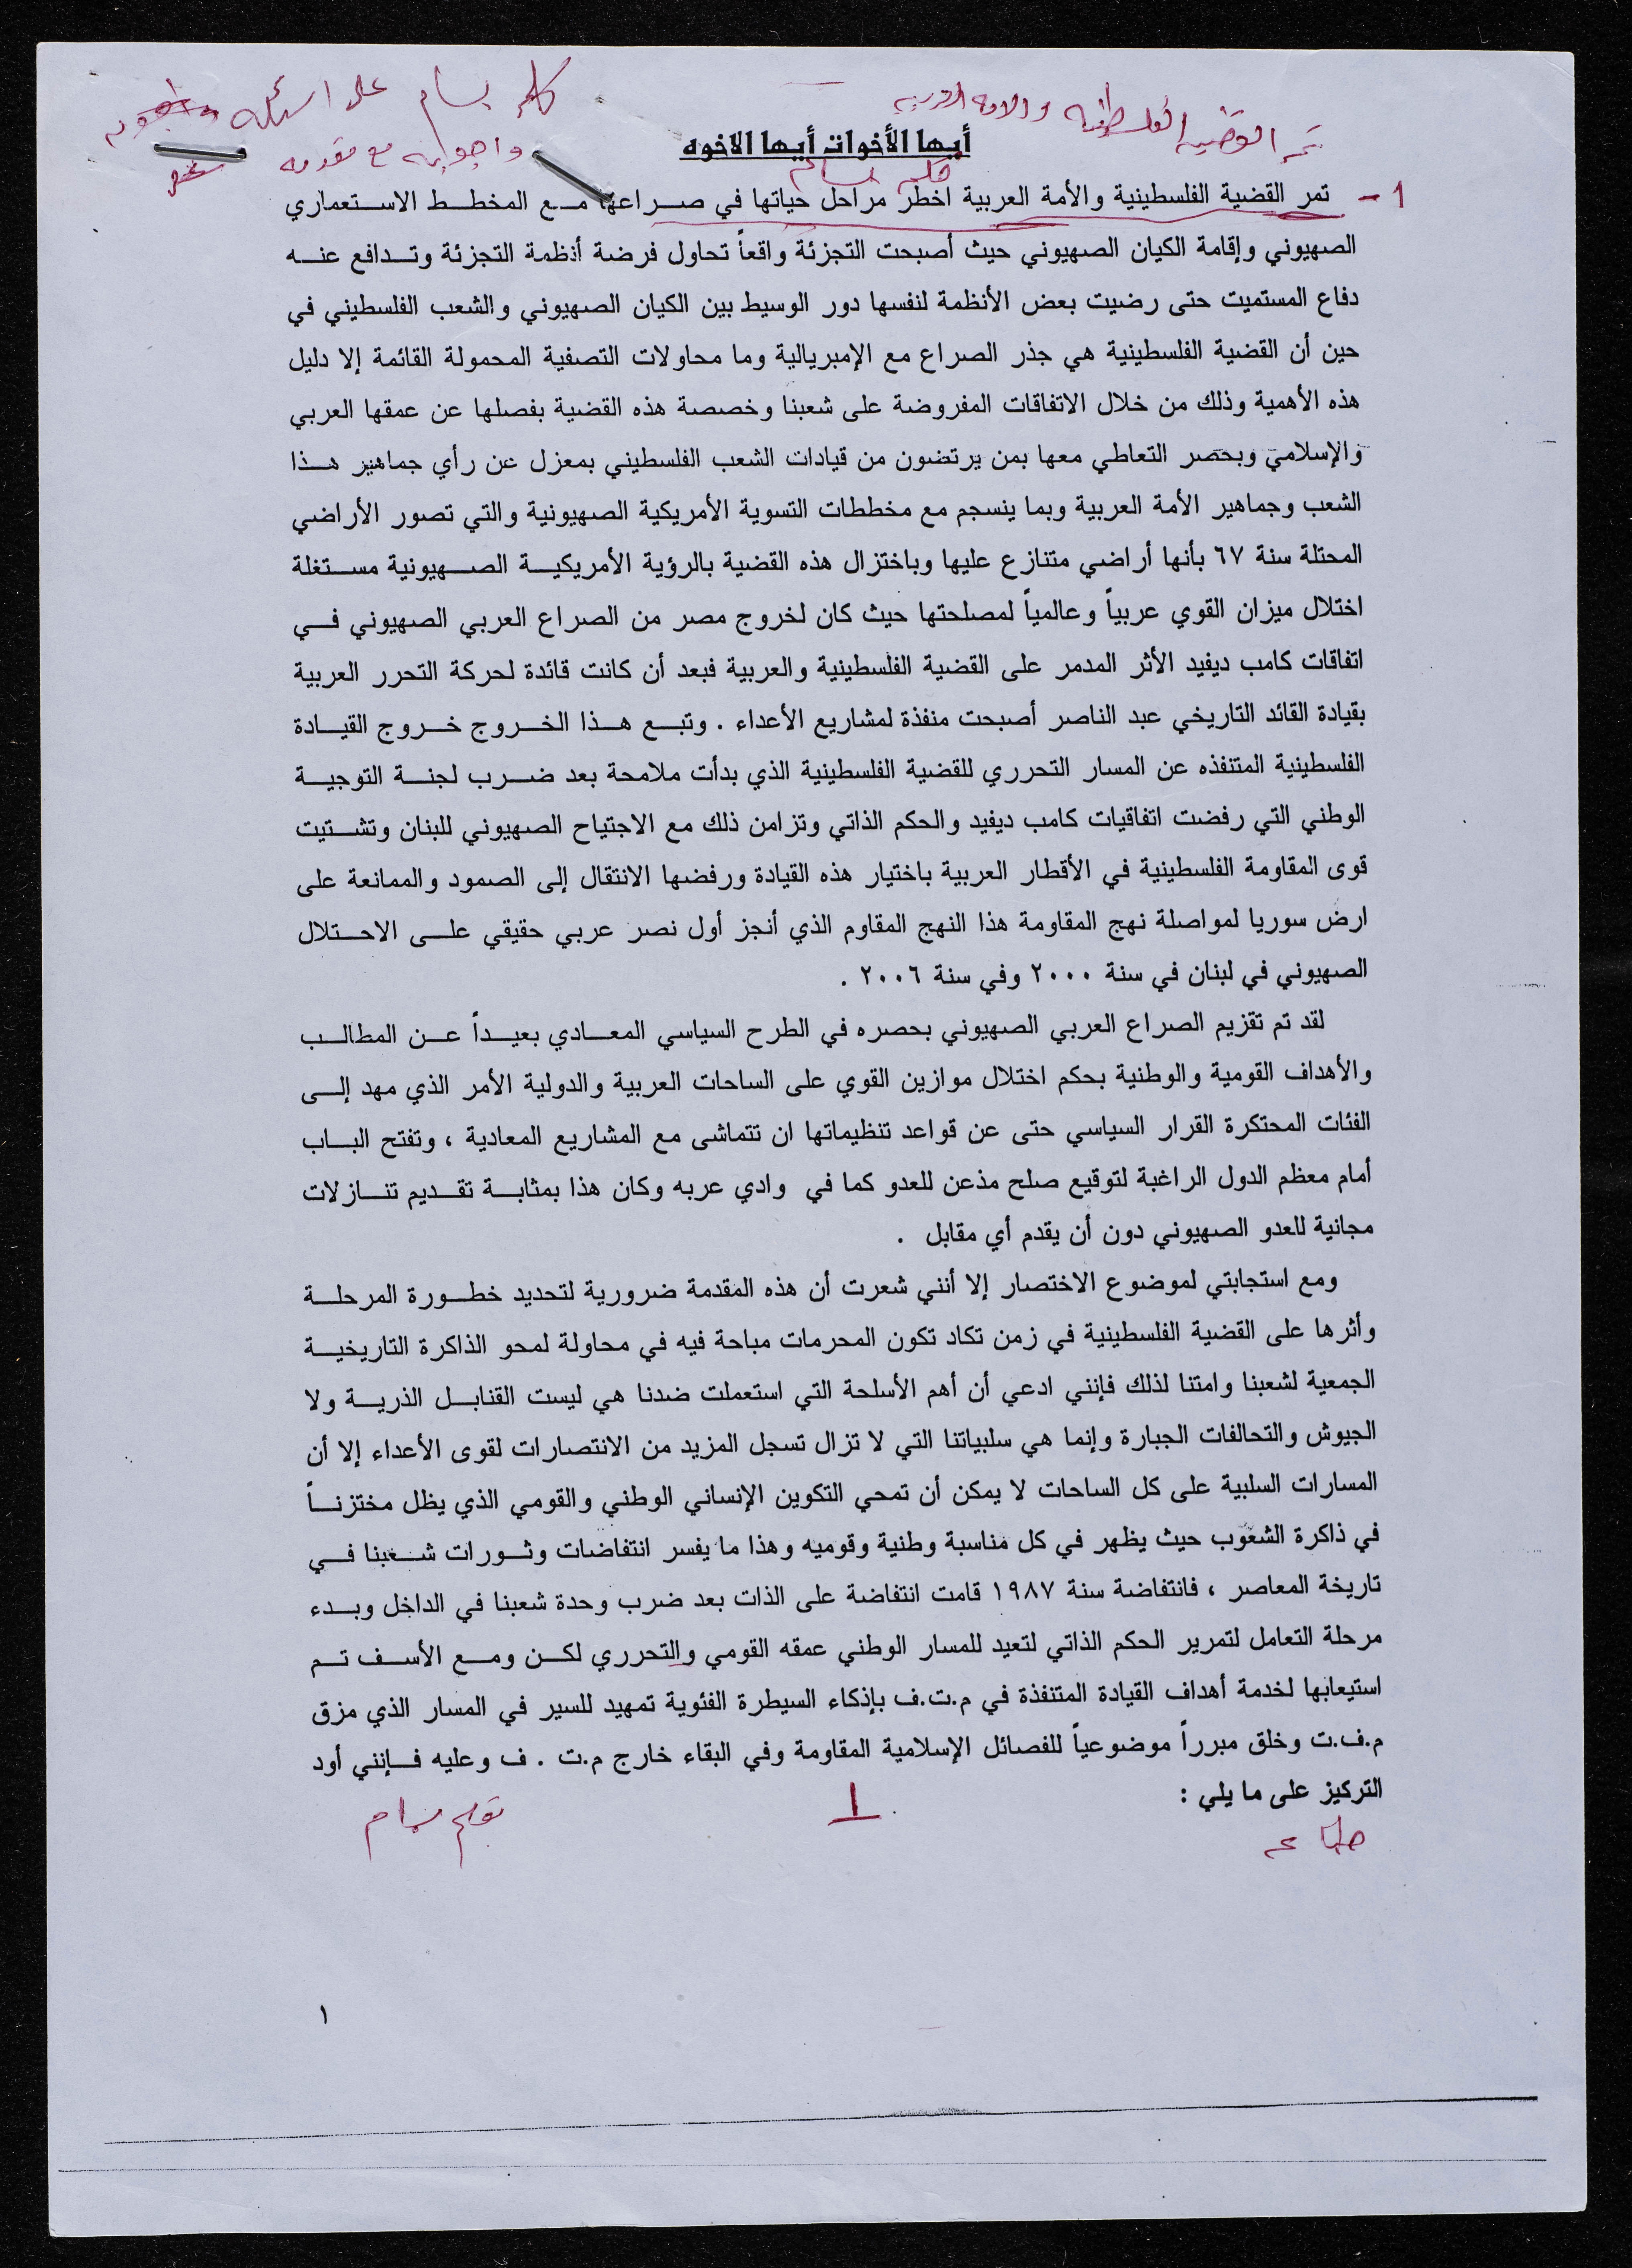 كلمة بسام على اسئله
تمر القضيه الفلسطينيه والامه العربيه
واجوبه مع مقدمه
أيها الأخوات أيها الاخوه
بسام
1 - تمر القضية الفلسطينية والأمة العربية اخطر مراحل حياتها في صراعها مع المخطط الاستعماري
الصهيوني وإقامة الكيان الصهيوني حيث أصبحت التجزئة واقعاً تحاول فرضة أنظمة التجزئة وتدافع عنه
دفاع المستميت حتى رضيت بعض الأنظمة لنفسها دور الوسيط بين الكيان الصهيوني والشعب الفلسطيني في
حين أن القضية الفلسطينية هي جذر الصراع مع الإمبريالية وما محاولات التصفية المحمولة القائمة إلا دليل
هذه الأهمية وذلك من خلال الاتفاقات المفروضة على شعبنا وخصصة هذه القضية بفصلها عن عمقها العربي
والإسلامي وبحصر التعاطي معها بمن يرتضون من قيادات الشعب الفلسطيني بمعزل عن رأي جماهير هذا
الشعب وجماهير الأمة العربية وبما ينسجم مع مخططات التسوية الأمريكية الصهيونية والتي تصور الأراضي
المحتلة سنة ٦٧ بأنها أراضي متنازع عليها وباختزال هذه القضية بالرؤية الأمريكية الصهيونية مستغلة
اختلال ميزان القوي عربياً وعالمياً لمصلحتها حيث كان لخروج مصر من الصراع العربي الصهيوني في
اتفاقات كامب ديفيد الأثر المدمر على القضية الفلسطينية والعربية فبعد أن كانت قائدة لحركة التحرر العربية
بقيادة القائد التاريخي عبد الناصر أصبحت منفذة لمشاريع الأعداء . وتبع هذا الخروج خروج القيادة
الفلسطينية المتنفذه عن المسار التحرري للقضية الفلسطينية الذي بدأت ملامحة بعد ضرب لجنة التوجية
الوطني التي رفضت اتفاقيات كامب ديفيد والحكم الذاتي وتزامن ذلك مع الاجتياح الصهيوني للبنان وتشتيت
قوى المقاومة الفلسطينية في الأقطار العربية باختيار هذه القيادة ورفضها الانتقال إلى الصمود والممانعة على
ارض سوريا لمواصلة نهج المقاومة هذا النهج المقاوم الذي أنجز أول نصر عربي حقيقي على الاحتلال
الصهيوني في لبنان في سنة ٢٠٠٠ وفي سنة ٢٠٠٦ .
لقد تم تقزيم الصراع العربي الصهيوني بحصره في الطرح السياسي المعادي بعيداً عن المطالب
والأهداف القومية والوطنية بحكم اختلال موازين القوي على الساحات العربية والدولية الأمر الذي مهد إلى
الفئات المحتكرة القرار السياسي حتى عن قواعد تنظيماتها ان تتماشى مع المشاريع المعادية ، وتفتح الباب
أمام معظم الدول الراغبة لتوقيع صلح مذعن للعدو كما في وادي عربه وكان هذا بمثابة تقديم تنازلات
مجانية للعدو الصهيوني دون أن يقدم أي مقابل .
ومع استجابتي لموضوع الاختصار إلا أنني شعرت أن هذه المقدمة ضرورية لتحديد خطورة المرحلة
وأثرها على القضية الفلسطينية في زمن تكاد تكون المحرمات مباحة فيه في محاولة لمحو الذاكرة التاريخية
الجمعية لشعبنا وامتنا لذلك فإنني ادعي أن أهم الأسلحة التي استعملت ضدنا هي ليست القنابل الذرية ولا
الجيوش والتحالفات الجبارة وإنما هي سلبياتنا التي لا تزال تسجل المزيد من الانتصارات لقوى الأعداء إلا أن
المسارات السلبية على كل الساحات لا يمكن أن تمحي التكوين الإنساني الوطني والقومي الذي يظل مختزناً
في ذاكرة الشعوب حيث يظهر في كل مناسبة وطنية وقوميه وهذا ما يفسر انتفاضات وثورات شعبنا في
تاريخة المعاصر ، فانتفاضة سنة ١٩٨٧ قامت انتفاضة على الذات بعد ضرب وحدة شعبنا في الداخل وبدء
مرحلة التعامل لتمرير الحكم الذاتي لتعيد للمسار الوطني عمقه القومي والتحرري لكن ومع الأسف تم
استيعابها لخدمة أهداف القيادة المتنفذة في م.ت.ف بإذكاء السيطرة الفئوية تمهيد للسير في المسار الذي مزق
م.ف.ت وخلق مبرراً موضوعياً للفصائل الإسلامية المقاومة وفي البقاء خارج م.ت . ف وعليه فإنني أود
التركيز على ما يلي :
1
بقلم بسام
طباعه
١